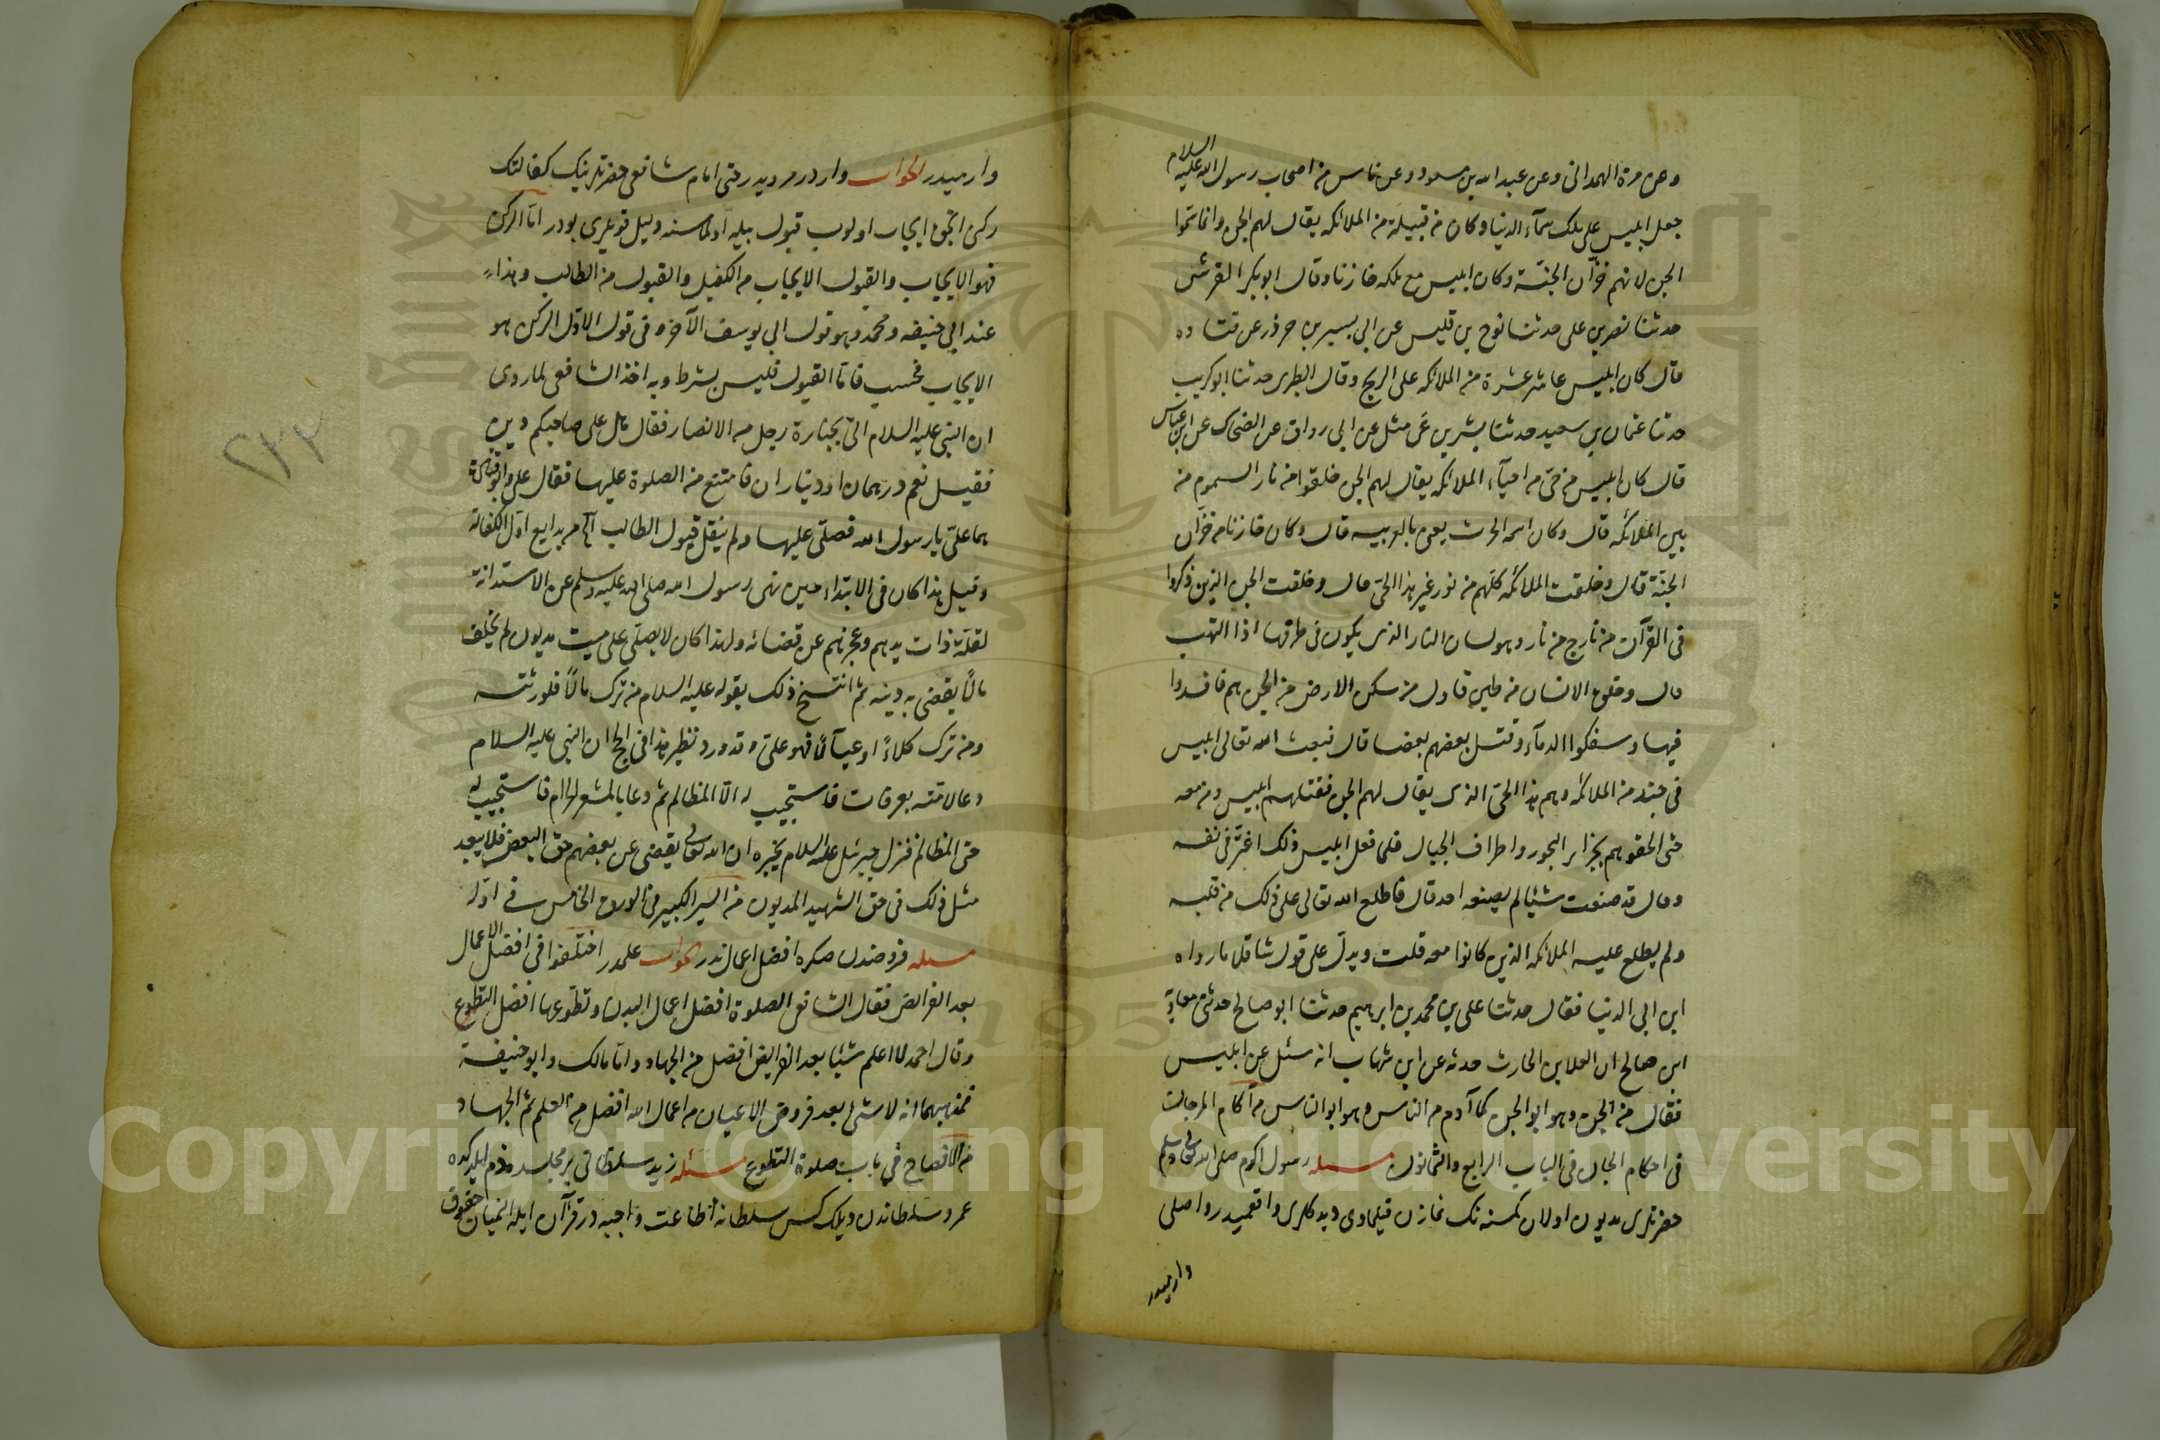 وعن مرة الهمداني وعن عبد الله بن مسعود وعن ناس من اصحاب رسول الله عليه السلام
جعل ابليس على ملك سمآء الدنيا وكان من قبيلة من الملائكه يقال لهم الجن وانما سمّوا
الجن لانهم خزّان الجنّة وكان ابليس مع ملكه خازنا وقال ابو بكر القرشى
حدثنا نصر بن على حدثنا نوح بن قيس عن ابى بن عن قتاده
قال كان ابليس عاشر عشرة من الملائكه على الريح وقال الطبرى حدثنا ابو كريب
حدثنا عثمان بن سعيد حدثنا بشر بن عن ابى رواق عن الضحاك عن ابن عباس
قال كان ابليس من حىّ من احيآء الملائكه يقال لهم الجن خلقوا من نار السموم من
بين الملائكه قال وكان اسمه الحرث يعنى بالعربيه قال وكان خازنا من خزّان
الجنّة قال وخلقت الملائكه كلهم من نور غير هذا الحىّ قال وخلقت الجن الذين ذكروا
فى القرآن من مارج من نار وهو لسان النار الذى يكون فى طرفها اذا التهب
قال وخلق الانسان من طين فاول من سكن الارض من الجن هم فافسدوا
فيها وسفكوا الدمآء وقتل بعضهم بعضا قال فبعث الله تعالى ابليس
فى جند من الملائكه وهم هذا الحىّ الذى يقال لهم الجن فقتلهم ابليس ومن معه
حتى الحقوهم بجزائر البحور واطراف الجبال فلما فعل ابليس ذلك اغترّ فى نفسه
وقال قد صنعت شيئا لم يصنعه احد قال فاطلع الله تعالى على ذلك من قلبه
ولم يطلع عليه الملائكه الذين كانوا معه قلت ويدلّ على قول ما رواه
ابن ابى الدنيا فقال حدثنا على بن محمد بن ابرهيم حدثنا ابو صالح حدثنى معاوية
ابن صالح ان العلا بن الحارث حدثه عن ابن شهاب انه سئل عن ابليس
فقال من الجن وهو ابو الجن كما آدم من الناس وهو ابو الناس من آكام المرجان
فى احكام الجان فى الباب الرابع والثمانون مسئله رسول اكرم صلى الله تعالى عليه وسلم
حضرتلرى مديون اولان كمسنه نك نمازن قيلمادى ديدكلرى واقعميدر واصلى
وارميدر
وارميدر الجواب واردر مرويدر حتى امام شافعى حضرتلرينك كفالتك
ركنى انجق ايجاب اولوب قبول بيله اولماسنه دليل قويلرى بودر امّا الركن
فهو الايجاب والقبول الايجاب من الكفيل والقبول من الطالب وهذا
عند ابى حنيفه ومحمّد وهو قول ابى يوسف الآخر وفى قول الاوّل الركن هو
الايجاب فحسب فامّا القبول فليس بشرط وبه اخذ الشافعى لما روى
ان النبى عليه السلام اتى بجنازة رجل من الانصار فقال هل على صاحبكم دين
فقيل نعم درهمان او ديناران فامتنع من الصلوة عليها فقال على وابو قتادة
هما علىّ يا رسول الله فصلى عليها ولم ينقل قبول الطالب من بدايع اوّل الكفالة
وقيل هذا كان فى الابتداء حين نهى رسول الله صلى الله عليه وسلم عن الاستدانة
لقلّة ذات يدهم وعجزهم عن قضائه ولهذا كان لا يصلّى على ميت مديون لم يخلف
مالًا يقضى به دينه ثم انتسخ ذلك بقوله عليه السلام من ترك مالًا فلورثته
ومن ترك كلاءً او عيالًا فهو علىّ وقد ورد نظير هذا فى الحج ان النبى عليه السلام
دعا لامّته بعرفات فاستجيب له الّا المظالم ثم دعا بالمشعر الحرام فاستجيب له
حتى المظالم فنزل جبرئل عليه السلام يخبره ان الله تعالى يقضى عن بعضهم حق البعض فلا يبعد
مثل ذلك فى حق الشهيد المديون من السير الكبير فى الخامس فى اوّله
مسئله فرضدن صكره افضل اعمال ندر الجواب علمدر اختلفوا فى افضل الاعمال
بعد الفرائض فقال الشافعى الصلوة افضل اعمال البدن وتطوعها افضل التطوع
وقال احمد لا اعلم شيئا بعد الفرايض افضل من الجهاد وامّا مالك وابو حنيفة
فمذهبهما انه لا شئ بعد فروض الاعيان من اعمال الله افضل من العلم ثم الجهاد
من الافصاح فى باب صلوة التطوع مسئله زيد سلطانى بر مجلسده ذم ايلدكده
عمرو سلطاندن ديلك كس سلطانه اطاعت واجبه در قرآن ايله النميان حقوق